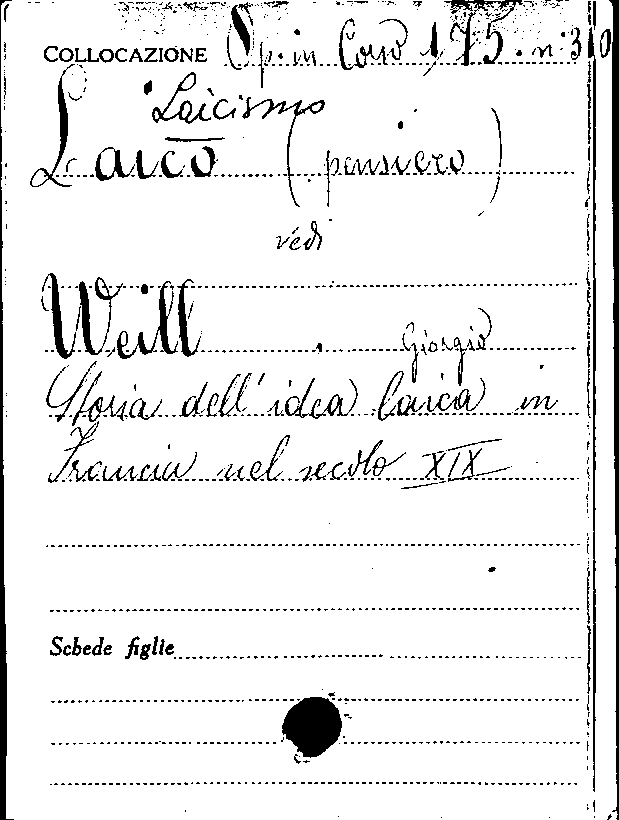 COLLOCAZIONE Op. in Corso 1,75. n. 310
Laicismo
Laico (pensiero)
vedi
Weill Giorgio
Storia dell'idea laica in
Francia nel secolo XIX
Schede figlie